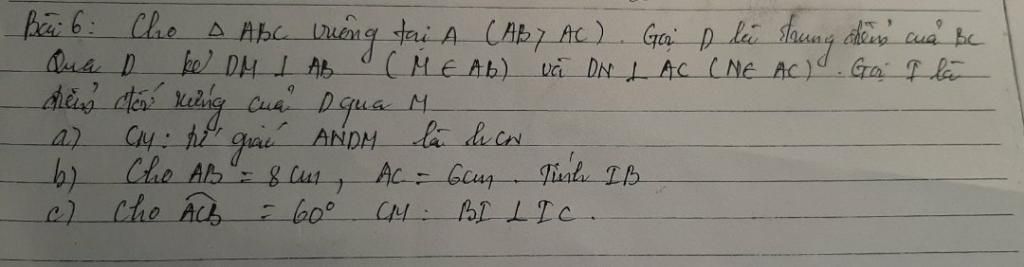 Bài 6: Cho Δ ABC vuông tại A (AB > AC). Gọi D là trung điểm của BC
Qua D kẻ DM ⊥ AB (M ∈ Ab) và DN ⊥ AC (N ∈ AC). Gọi I là
điểm đối xứng của D qua M
a) CM: tứ giác ANDM là hcN
b) Cho AB = 8 cm, AC = 6cm. Tính IB
c) Cho ACB = 60° CM: BI ⊥ IC.